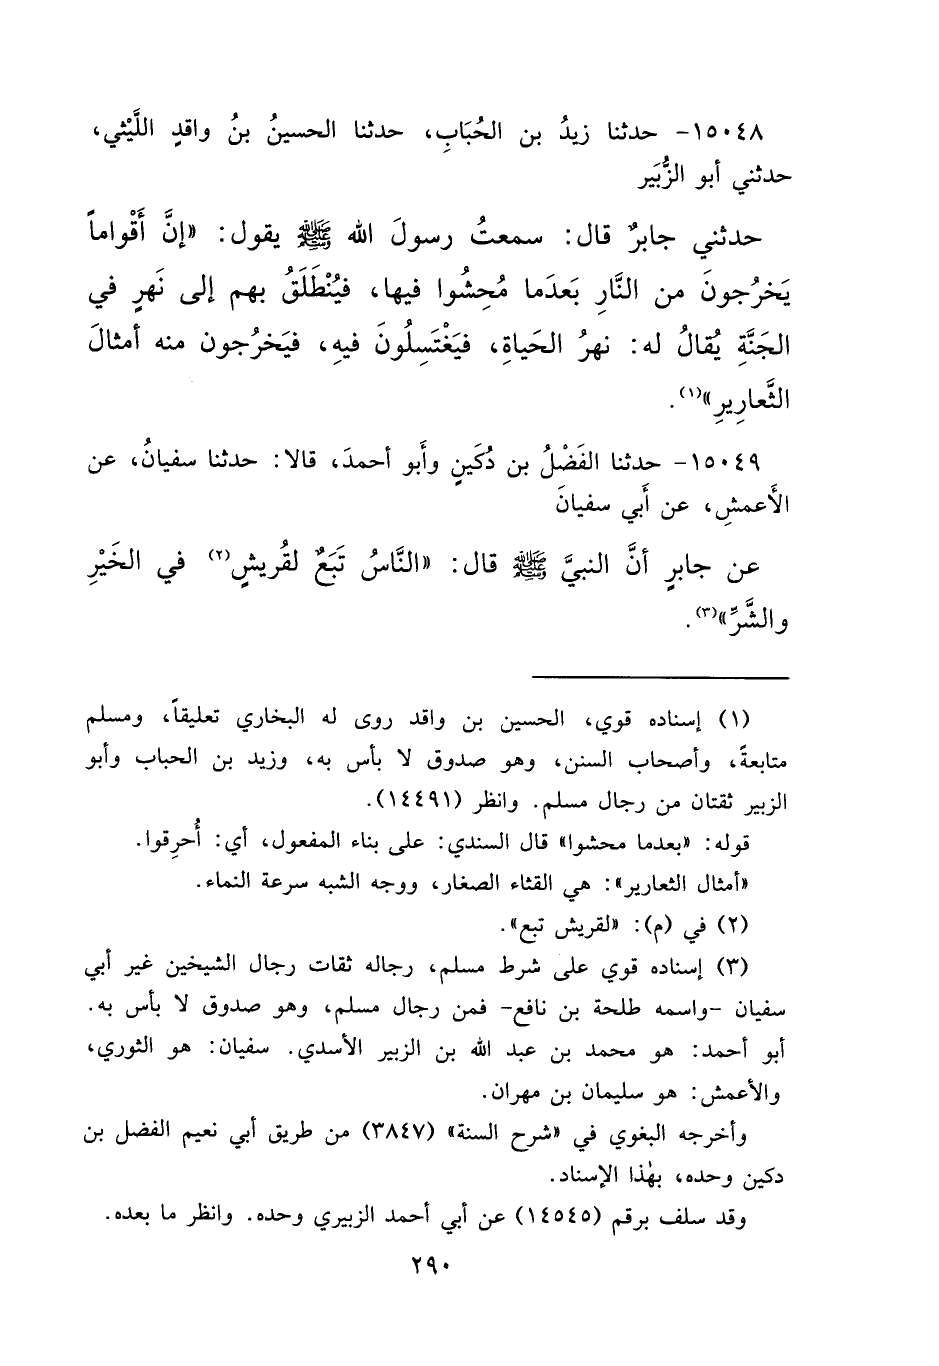 ١٥٠٤٨- حدثنا زيدُ بن الحُبَابِ، حدثنا الحسينُ بنُ واقدٍ اللَّيْثي،
حدثني أبو الزُّبَير
حدثني جابرٌ قال: سمعتُ رسولَ الله ﷺ يقول: «إنَّ أَقْواماً
يَخرُجونَ من النَّارِ بَعدَما مُحِشُوا فيها، فيُنْطَلَقُ بهم إلى نَهرٍ في
الجَنَّةِ يُقالُ له: نهرُ الحَياةِ، فيَغْتَسِلُونَ فيهِ، فيَخرُجون منه أمثالَ
الثَّعارِيرِ»(١).
١٥٠٤٩- حدثنا الفَضْلُ بن دُكَينٍ وأَبو أحمدَ، قالا: حدثنا سفيانُ، عن
الأَعمشِ، عن أَبي سفيانَ
عن جابرٍ أنَّ النبيَّ ﷺ قال: «النَّاسُ تَبَعٌ لقُريشٍ(٢) في الخَيْرِ
والشَّرِّ»(٣).
(١) إسناده قوي، الحسين بن واقد روى له البخاري تعليقاً، ومسلم
متابعةً، وأصحاب السنن، وهو صدوق لا بأس به، وزيد بن الحباب وأبو
الزبير ثقتان من رجال مسلم. وانظر (١٤٤٩١).
قوله: «بعدما محشوا» قال السندي: على بناء المفعول، أي: أُحرِقوا.
«أمثال الثعارير»: هي القثاء الصغار، ووجه الشبه سرعة النماء.
(٢) في (م): «لقريش تبع».
(٣) إسناده قوي على شرط مسلم، رجاله ثقات رجال الشيخين غير أبي
سفيان -واسمه طلحة بن نافع- فمن رجال مسلم، وهو صدوق لا بأس به.
أبو أحمد: هو محمد بن عبد الله بن الزبير الأسدي. سفيان: هو الثوري،
والأعمش: هو سليمان بن مهران.
وأخرجه البغوي في «شرح السنة» (٣٨٤٧) من طريق أبي نعيم الفضل بن
دكين وحده، بهٰذا الإسناد.
وقد سلف برقم (١٤٥٤٥) عن أبي أحمد الزبيري وحده. وانظر ما بعده.
٢٩٠